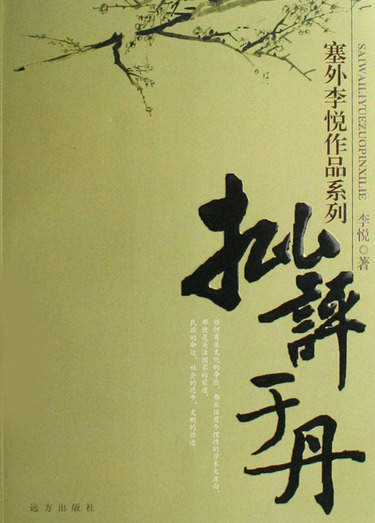 塞外李悦作品系列
SAIWAILIYUEZUOPINXILIE
李悦◎著
批評于丹
任何有关文化的争论，都应该有个理性的学术大方向，
那就是关注国家的前途，
民族的命运，社会的进步，文明的推进。
远方出版社